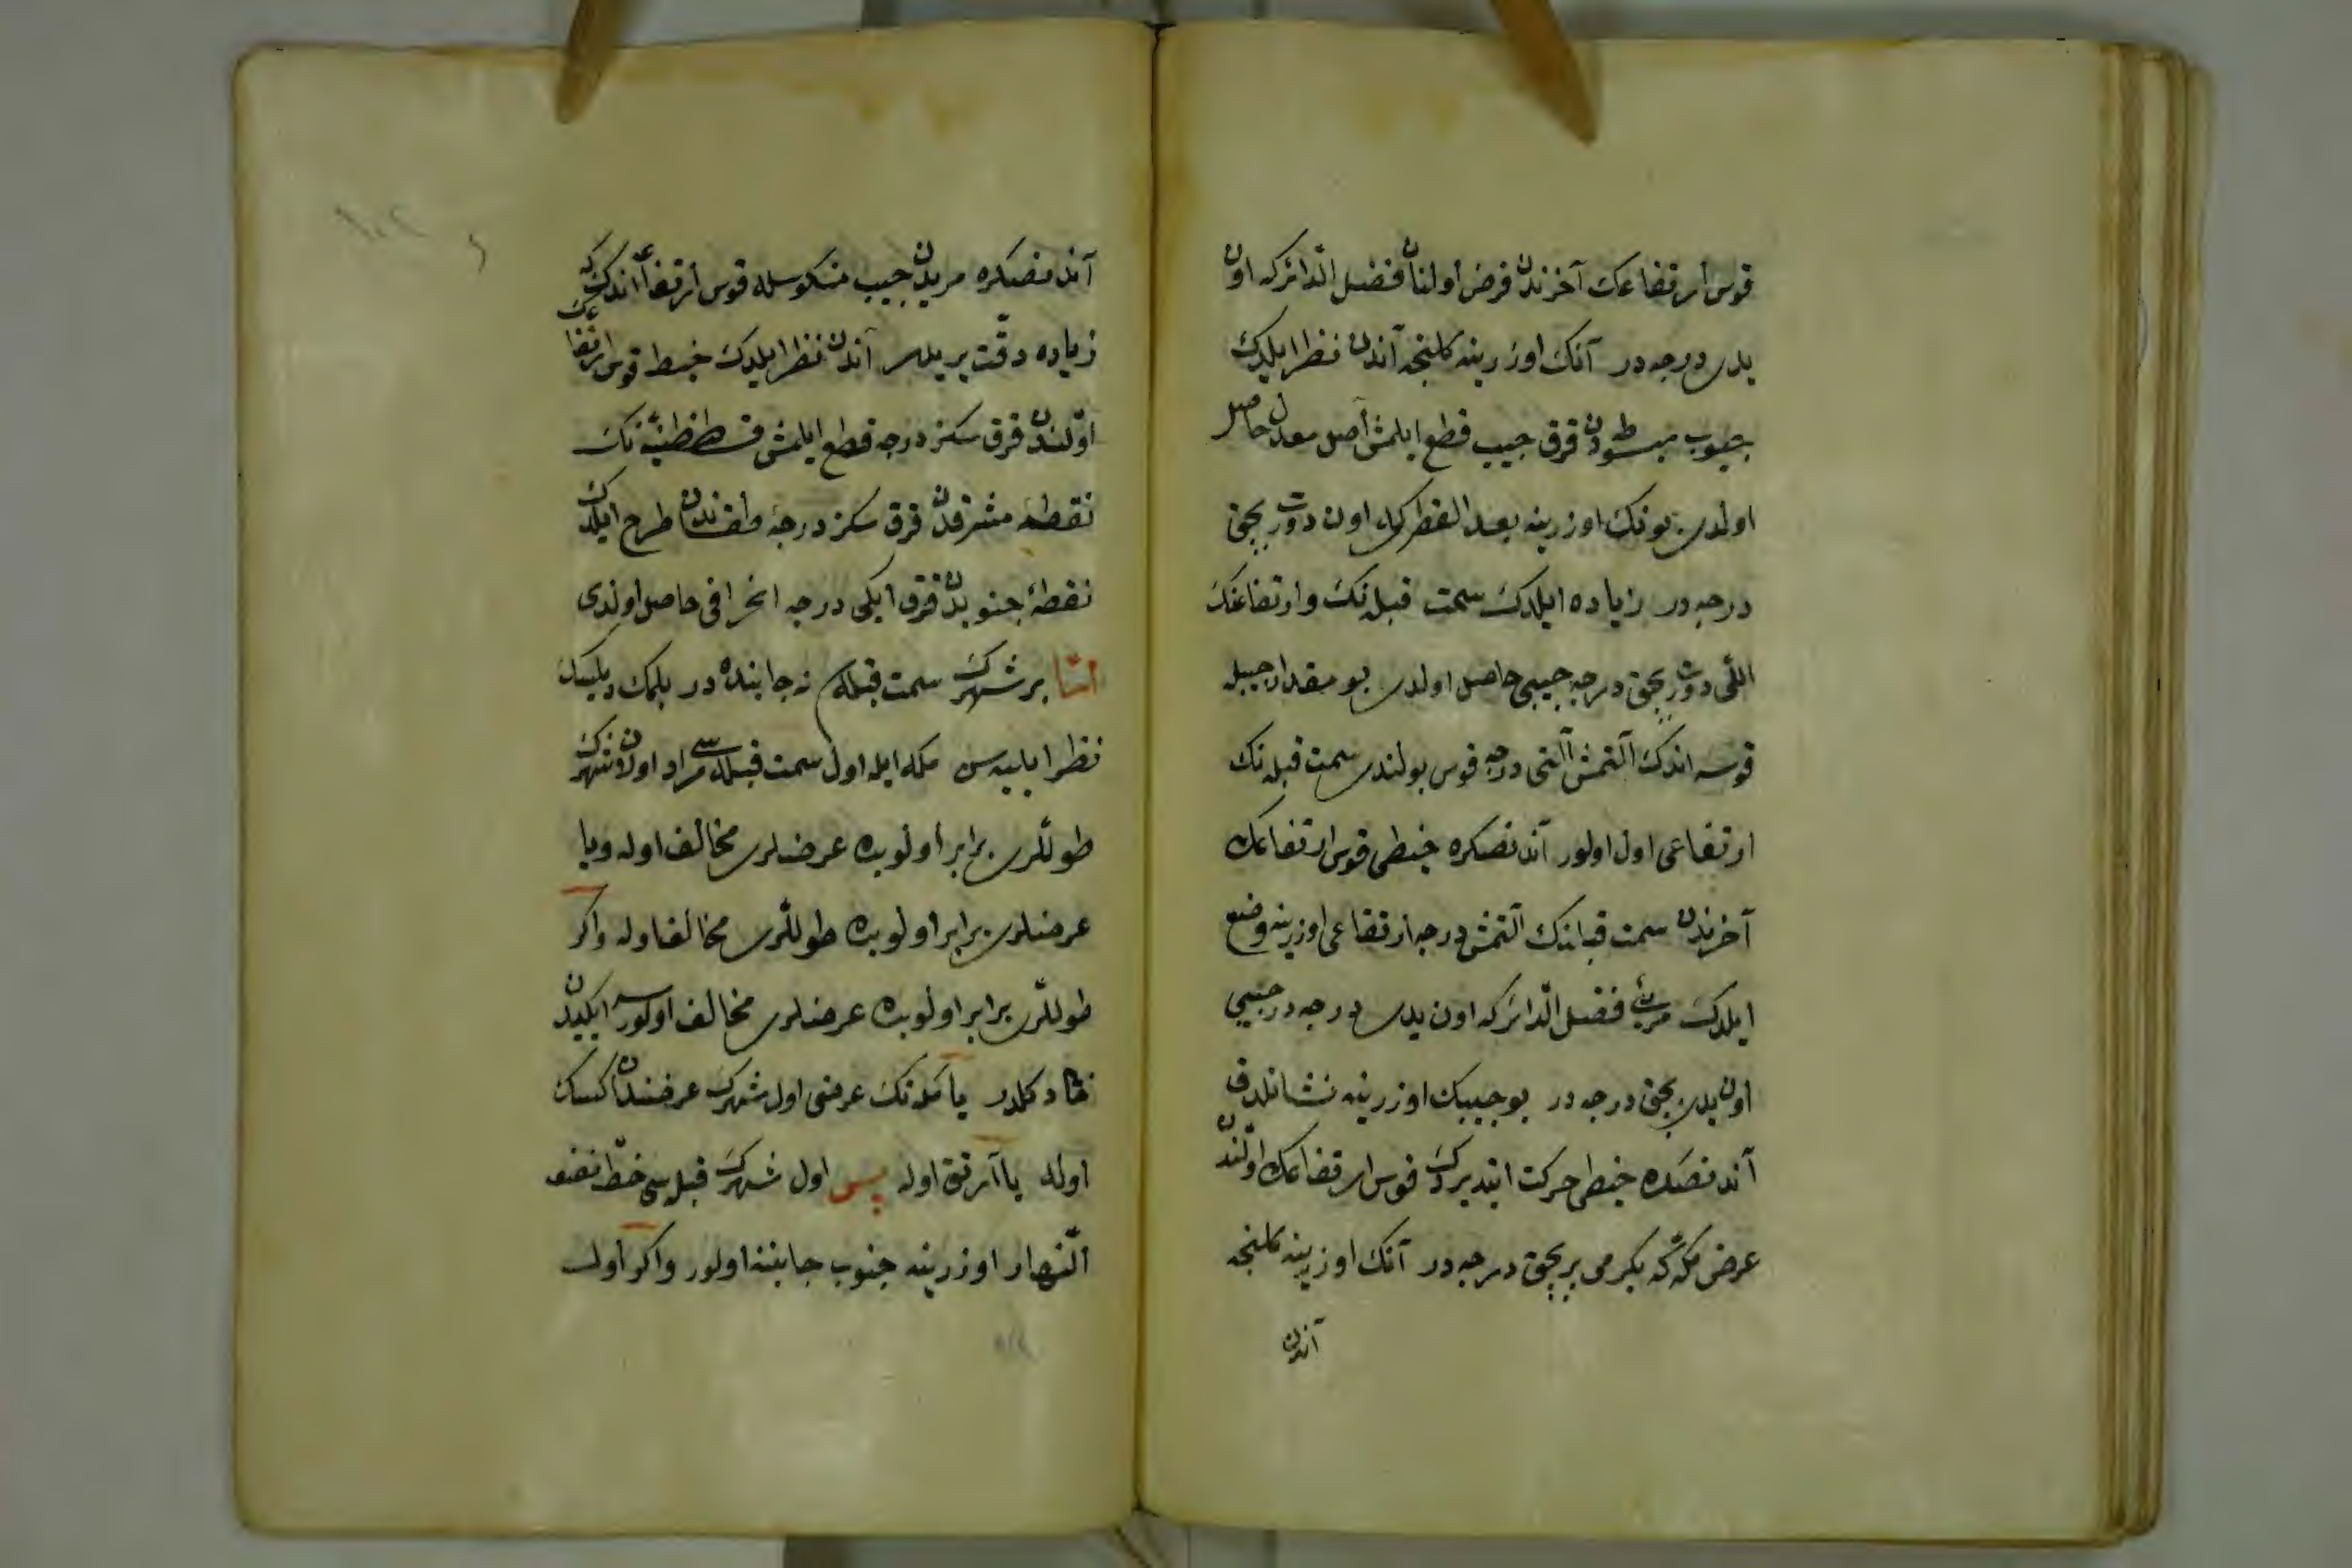 قوس ارتفاعك آخرندن فرض اولنان فضل الدائر كه اون
يدى درجه در آنك اوزرينه كلنجه آندن نظر ايلدك
جيوب مبسوطه دن قرق جيب قطع ايلمش اصل معدل حاصل
اولدى بونك اوزرينه بعد القطر كه اون دورت بچق
درجه در زياده ايلدك سمت قبله نك وارتفاعنك
اللى دورت بچق درجه جيبى حاصل اولدى بو مقدار جيبله
قوسه اندك آلتمش آلتى درجه قوس بولندى سمت قبله نك
ارتفاعى اول اولور آندنصكره خيطى قوس ارتفاعك
آخرندن سمت قبله نك آلتمش درجه ارتفاعى اوزرينه وضع
ايلدك مريئى فضل الدائر كه اون يدى درجه در جيبى
اون يدى بچق درجه در بو جيبك اوزرينه نشانلدق
آندنصكره خيطى حركت ايتديردك قوس ارتفاعك اولندن
عرض مكه كه يكرمى بر بچق درجه در آنك اوزرينه كلنجه
آندن
آندنصكره مريدن جيب منكوسله قوس ارتفاعه اندك كه
زياده دقت بريله آندن نظر ايلدك خيط قوس ارتفاعك
اولندن قرق سكز درجه قطع ايلمش قسطنطنيه نك
نقطه مشرقدن قرق سكز درجه طقساندن طرح ايلدك
نقطۀ جنوبدن قرق ايكى درجه انحرافى حاصل اولدى
امّا بر شهرك سمت قبله نه جابنده در بلمك ديلسك
نظر ايليه سن مكه ايله اول سمت قبله سى مراد اولان شهرك
طوللرى برابر اولوبده عرضلرى مخالف اوله ويا
عرضلرى برابر اولوبده طوللرى مخالف اوله واكر
طوللرى برابر اولوبده عرضلرى مخالف اولورسه ايكيدن
خا د كلدر يا مكه نك عرضى اول شهرك عرضندن اكسك
اوله يا آرتق اوله پس اول شهرك قبله سى خط نصف
النهار اوزرينه جنوب جابنه اولور واكر اول